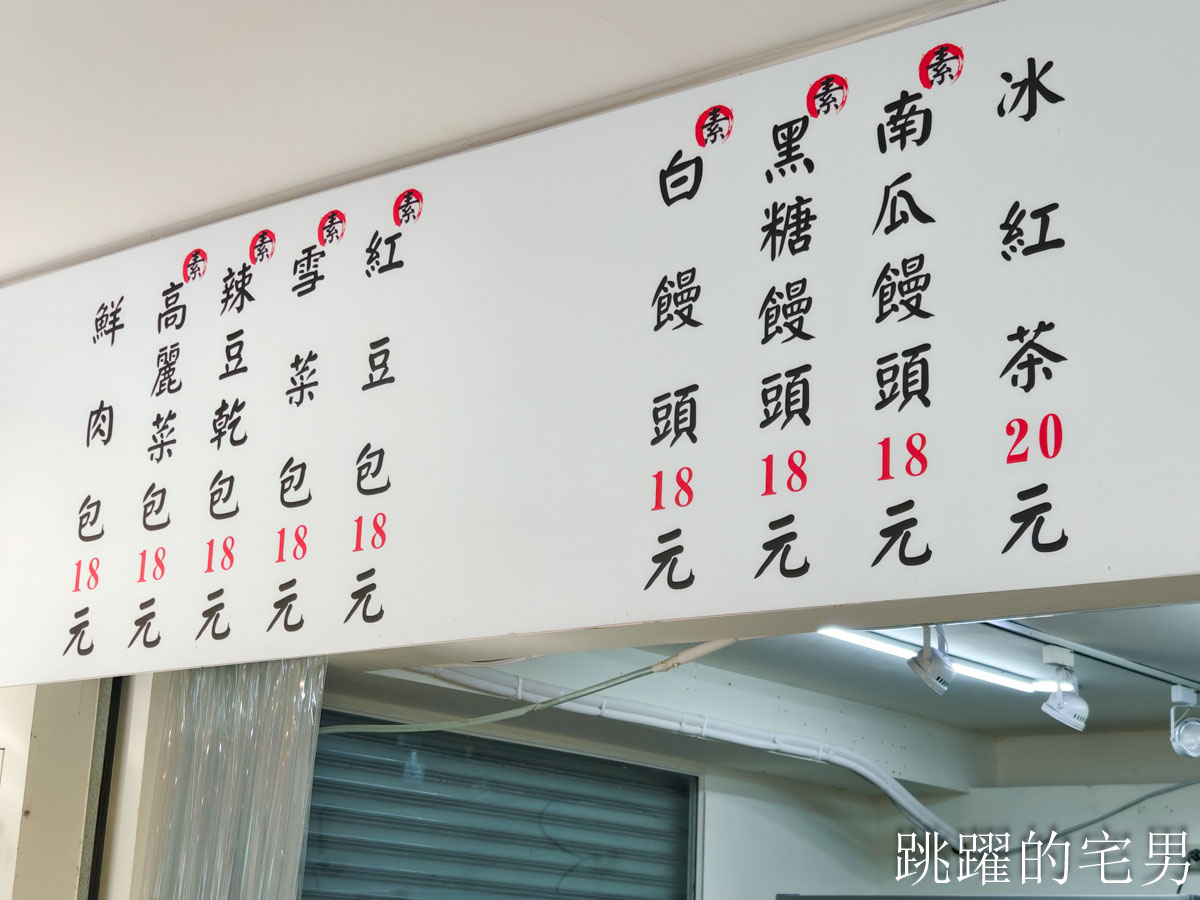 冰紅茶20元
素
南瓜饅頭18元
素
黑糖饅頭18元
素
白饅頭18元
素
紅豆包18元
素
雪菜包18元
素
辣豆乾包18元
素
高麗菜包18元
鮮肉包18元
跳躍的宅男